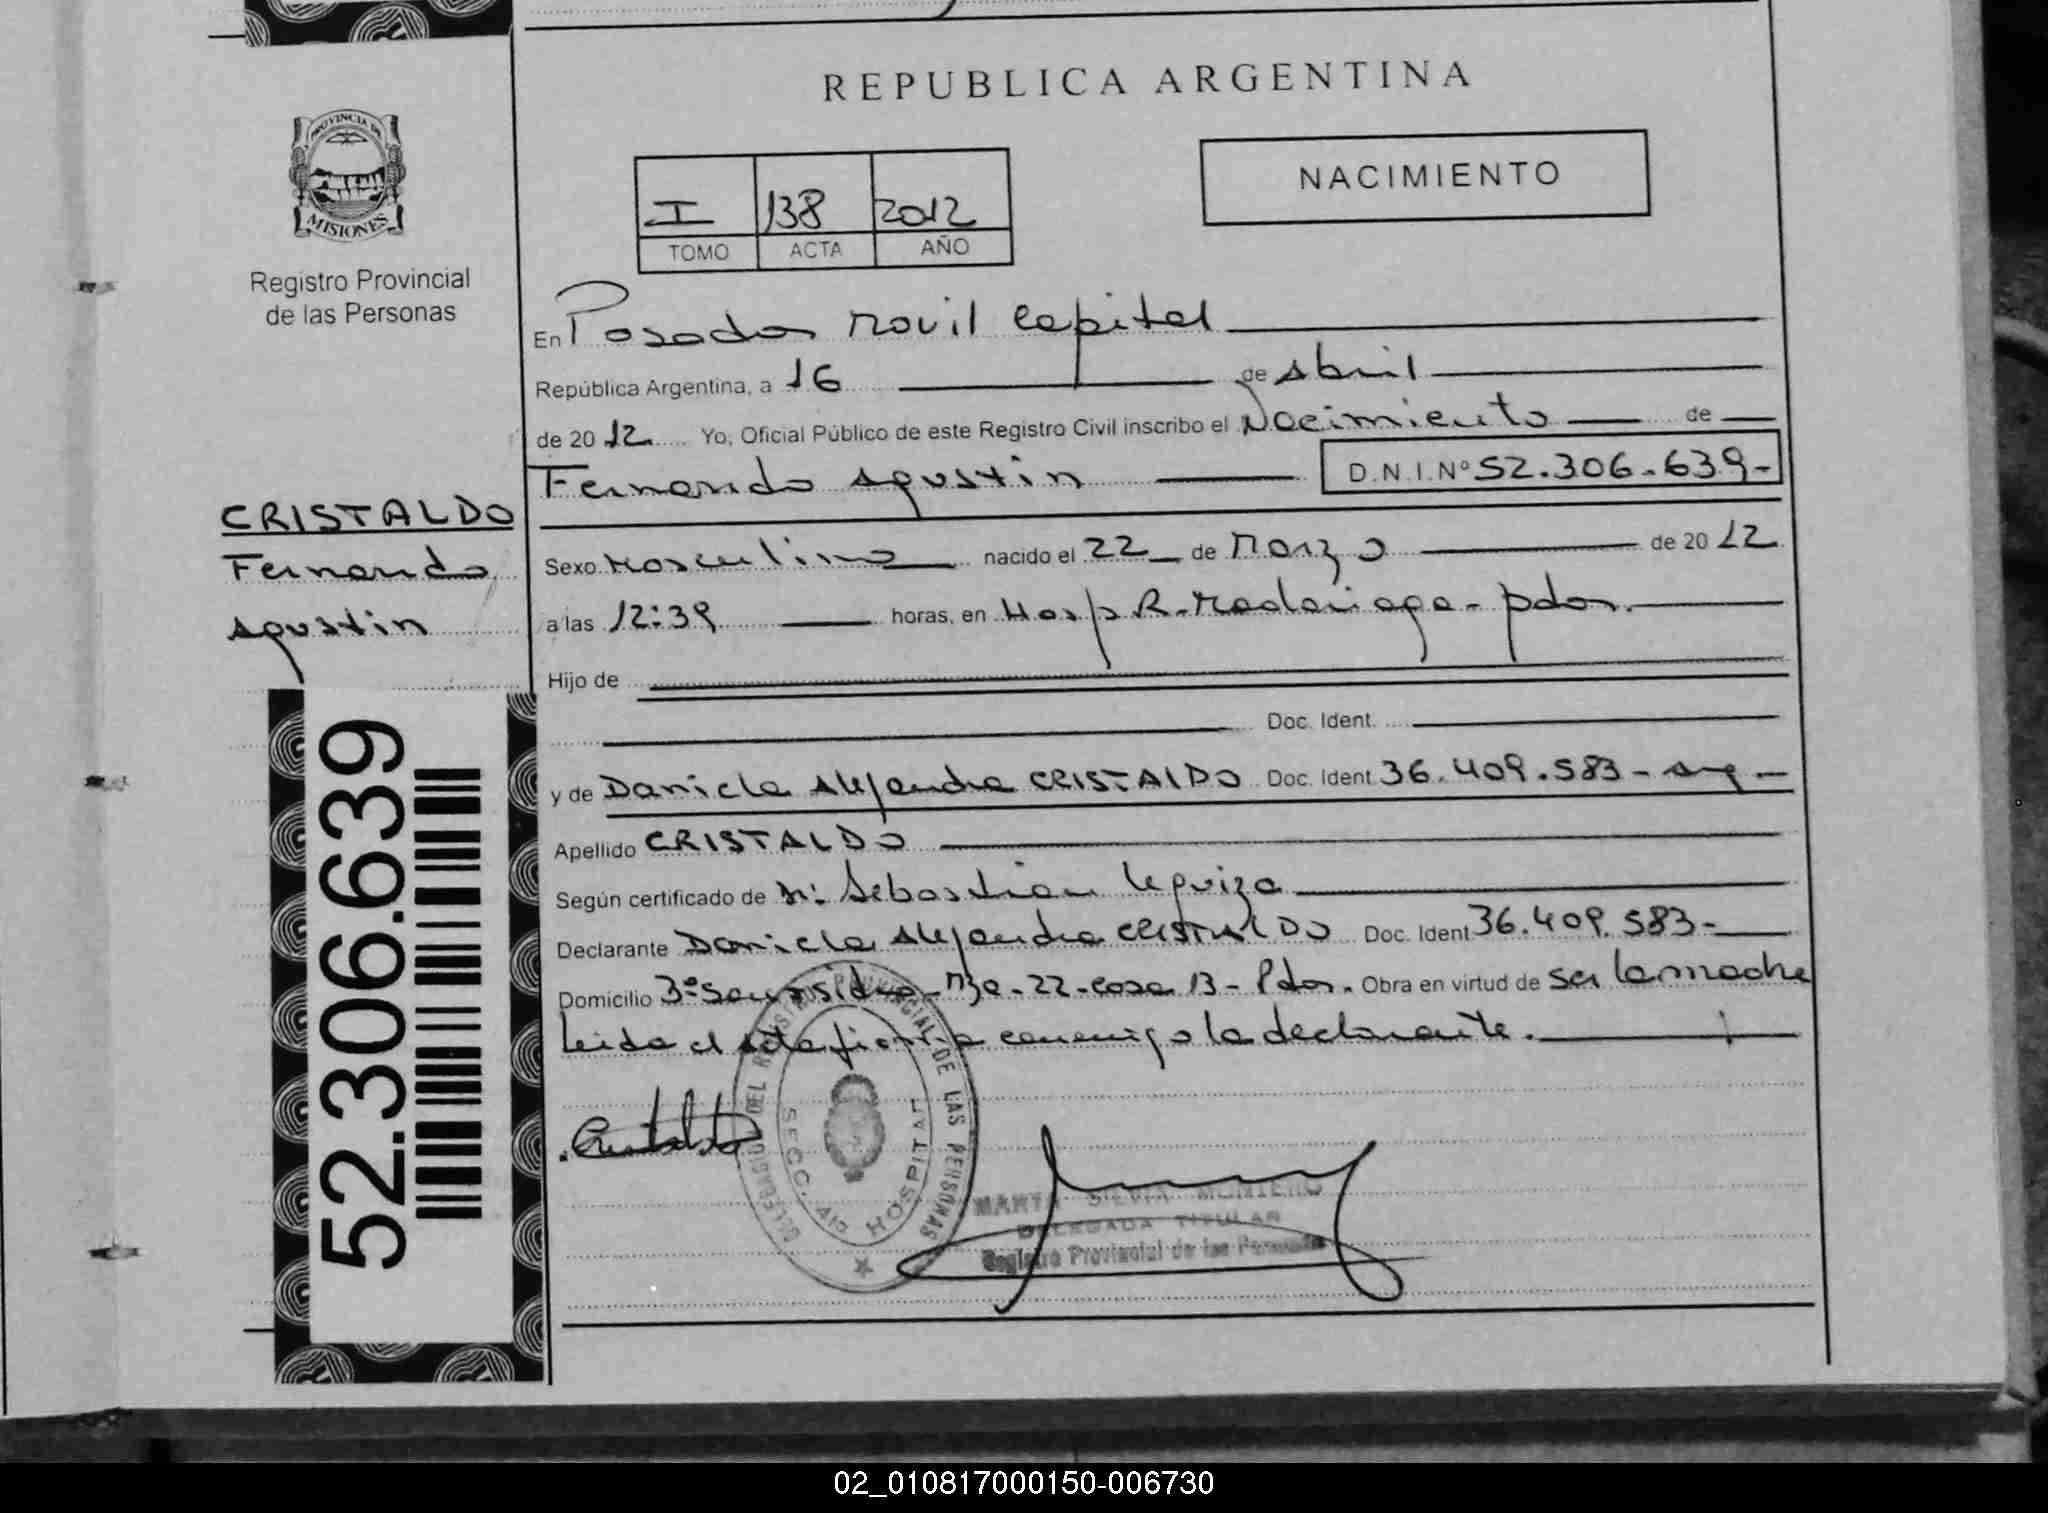 REPUBLICA ARGENTINA
PROVINCIA DE
MISIONES
Registro Provincial
de las Personas
NACIMIENTO
I 138 2012
TOMO ACTA AÑO
En Posadas Movil Capital
República Argentina, a 16 de Abril
de 2012 Yo, Oficial Público de este Registro Civil inscribo el Nacimiento de
Fernando Agustin D.N.I.Nº 52.306.639-
CRISTALDO
Fernando
Agustin
Sexo Masculino nacido el 22 de Marzo de 2012
a las 12:39 horas, en Hosp R. Madariaga - pdas.
Hijo de
Doc. Ident.
y de Daniela Alejandra CRISTALDO Doc. Ident 36.409.583 - arg -
Apellido CRISTALDO
Según certificado de Sebastian Leguiza
Declarante Daniela Alejandra CRISTALDO Doc. Ident 36.409.583-
Domicilio 3º San Isidro - Mza - 22 - casa 13 - Pdas. Obra en virtud de ser la madre
Leida el acta firma conmigo la declarante.
52.306.639
Cristaldo
DELEGACION DEL REGISTRO PROVINCIAL DE LAS PERSONAS
SECC. HOSPITAL
MARTA SILVIA MONTERO
DELEGADA TITULAR
Registro Provincial de las Personas
02_010817000150-006730